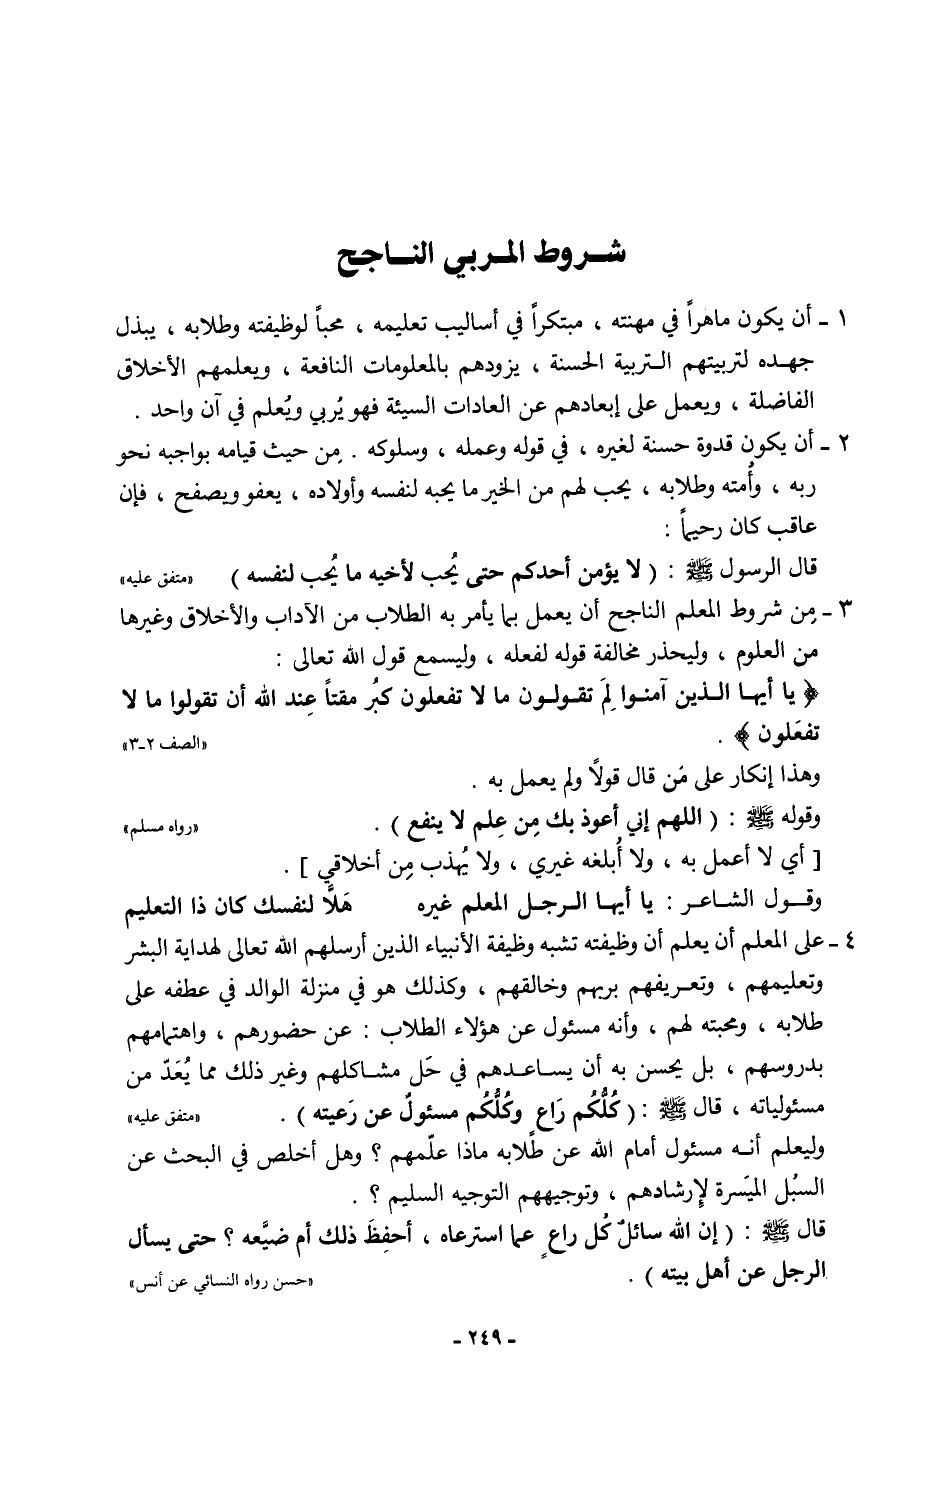 شـروط المـربي النـاجح
١ ـ أن يكون ماهراً في مهنته ، مبتكراً في أساليب تعليمه ، محباً لوظيفته وطلابه ، يبذل
جهـده لتربيتهم التـربية الحسنة ، يزودهم بالمعلومات النافعة ، ويعلمهم الأخلاق
الفاضلة ، ويعمل على إبعادهم عن العادات السيئة فهو يُربي ويُعلم في آن واحد .
٢ ـ أن يكون قدوة حسنة لغيره ، في قوله وعمله ، وسلوكه . مِن حيث قيامه بواجبه نحو
ربه ، وأُمته وطلابه ، يحب لهم من الخير ما يحبه لنفسه وأولاده ، يعفو ويصفح ، فإن
عاقب كان رحيماً :
قال الرسول ﷺ : ( لا يؤمن أحدكم حتى يُحب لأخيه ما يُحب لنفسه ) «متفق عليه»
٣ ـ مِن شروط المعلم الناجح أن يعمل بما يأمر به الطلاب من الآداب والأخلاق وغيرها
من العلوم ، وليحذر مخالفة قوله لفعله ، وليسمع قول الله تعالى :
﴿ يا أيهـا الـذين آمنـوا لِمَ تقـولـون ما لا تفعلون كبُر مقتاً عِند الله أن تقولوا ما لا
تفعَلون ﴾ . «الصف ٢ـ٣»
وهذا إنكار على مَن قال قولًا ولم يعمل به .
وقوله ﷺ : ( اللهم إني أعوذ بك مِن عِلم لا ينفع ) . «رواه مسلم»
[ أي لا أعمل به ، ولا أُبلغه غيري ، ولا يُهذب مِن أخلاقي ] .
وقـول الشـاعـر : يا أيهـا الـرجـل المعلم غيره هَلَّا لنفسك كان ذا التعليم
٤ ـ على المعلم أن يعلم أن وظيفته تشبه وظيفة الأنبياء الذين أرسلهم الله تعالى لهداية البشر
وتعليمهم ، وتعـريفهم بربهم وخالقهم ، وكذلك هو في منزلة الوالد في عطفه على
طلابه ، ومحبته لهم ، وأنه مسئول عن هؤلاء الطلاب : عن حضورهم ، واهتمامهم
بدروسهم ، بل يحسن به أن يسـاعـدهم في حَل مشـاكلهم وغير ذلك مما يُعَدّ من
مسئولياته ، قال ﷺ : ( كُلُّكُم رَاعٍ وكُلُّكُم مسئولٌ عن رَعيته ) . «متفق عليه»
وليعلم أنـه مسئول أمام الله عن طلابه ماذا علّمهم ؟ وهل أخلص في البحث عن
السبُل الميَسرة لإرشادهم ، وتوجيههم التوجيه السليم ؟ .
قال ﷺ : ( إن الله سائلٌ كُل راعٍ عما استرعاه ، أحفِظَ ذلك أم ضيَّعه ؟ حتى يسأل
الرجل عن أهل بيته ) . «حسن رواه النسائي عن أنس»
ـ ٢٤٩ ـ